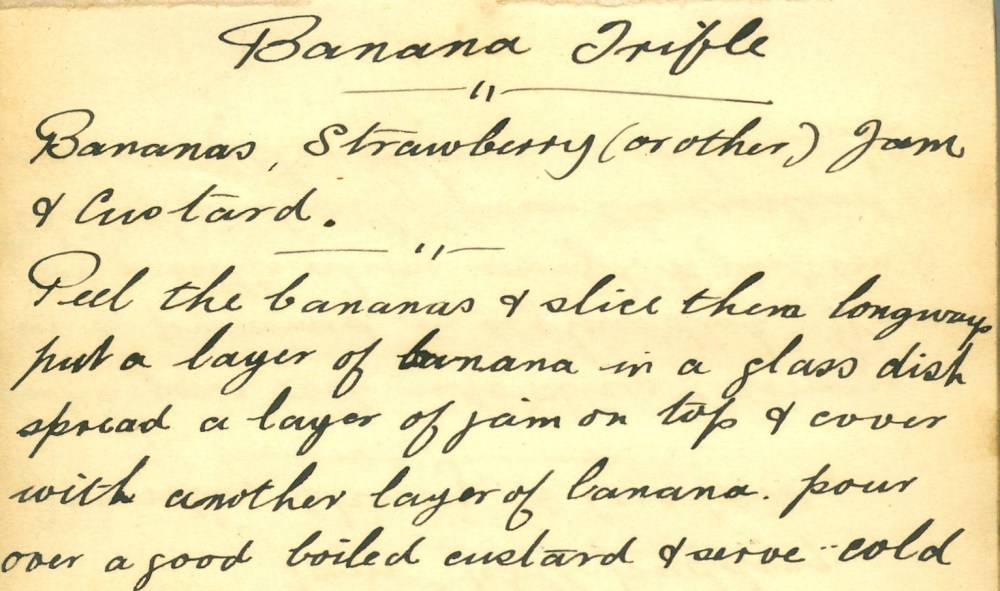 Banana Trifle
Bananas, Strawberry (or other) Jam
& Custard.
Peel the bananas & slice them longways
put a layer of banana in a glass dish
spread a layer of jam on top & cover
with another layer of banana. pour
over a good boiled custard & serve cold